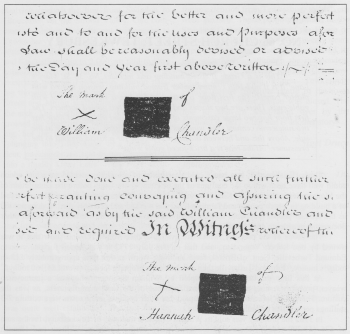 whatsoever for the better and more perfect
and to and for the Uses and purposes afor
Law shall be reasonably devised or advised
the Day and Year first above written
The mark of
William Chandler
be made done and executed all such further
granting conveying and assuring the s
aforesaid as by the said William Chandler and
and required In Witness whereof the
The mark of
Hannah Chandler